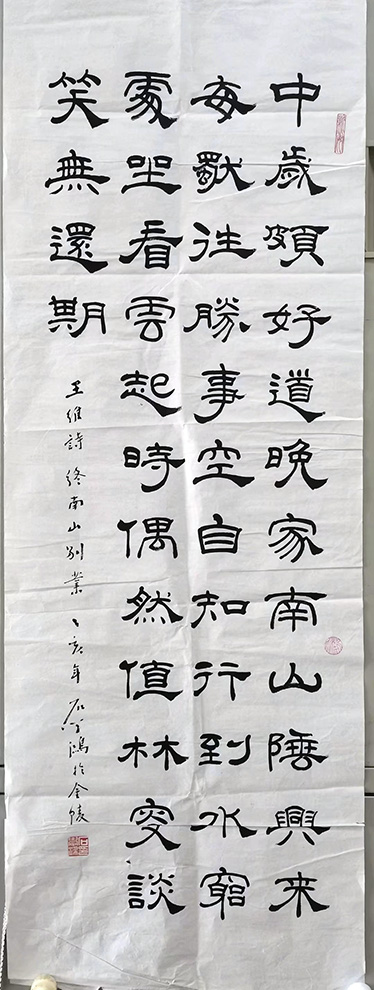 中歲頗好道晚家南山陲興來
每獨往勝事空自知行到水窮
處坐看雲起時偶然值林叟談
笑無還期
王維詩終南山別業 亥年 石鴻於金陵